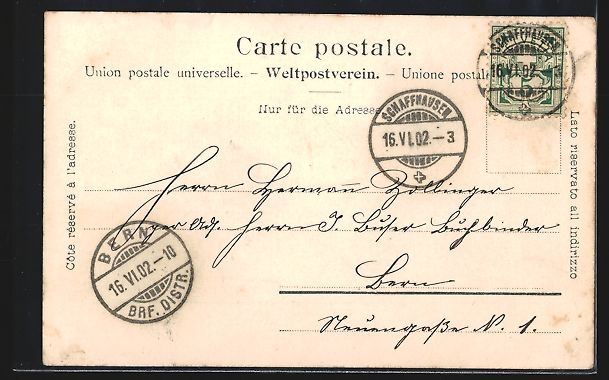 Carte postale.
Union postale universelle. – Weltpostverein. – Unione postale
Nur für die Adresse
SCHAFFHAUSEN
16.VI.02.
5
SCHAFFHAUSEN
16.VI.02.–3
Côte réservé à l'adresse.
Lato riservato all indirizzo
Herrn Hermann Zollinger
per Ads. Herrn J. Buser Buchbinder
Bern
Neuengaße N. 1.
BERN
16.VI.02.–10
BRF. DISTR.